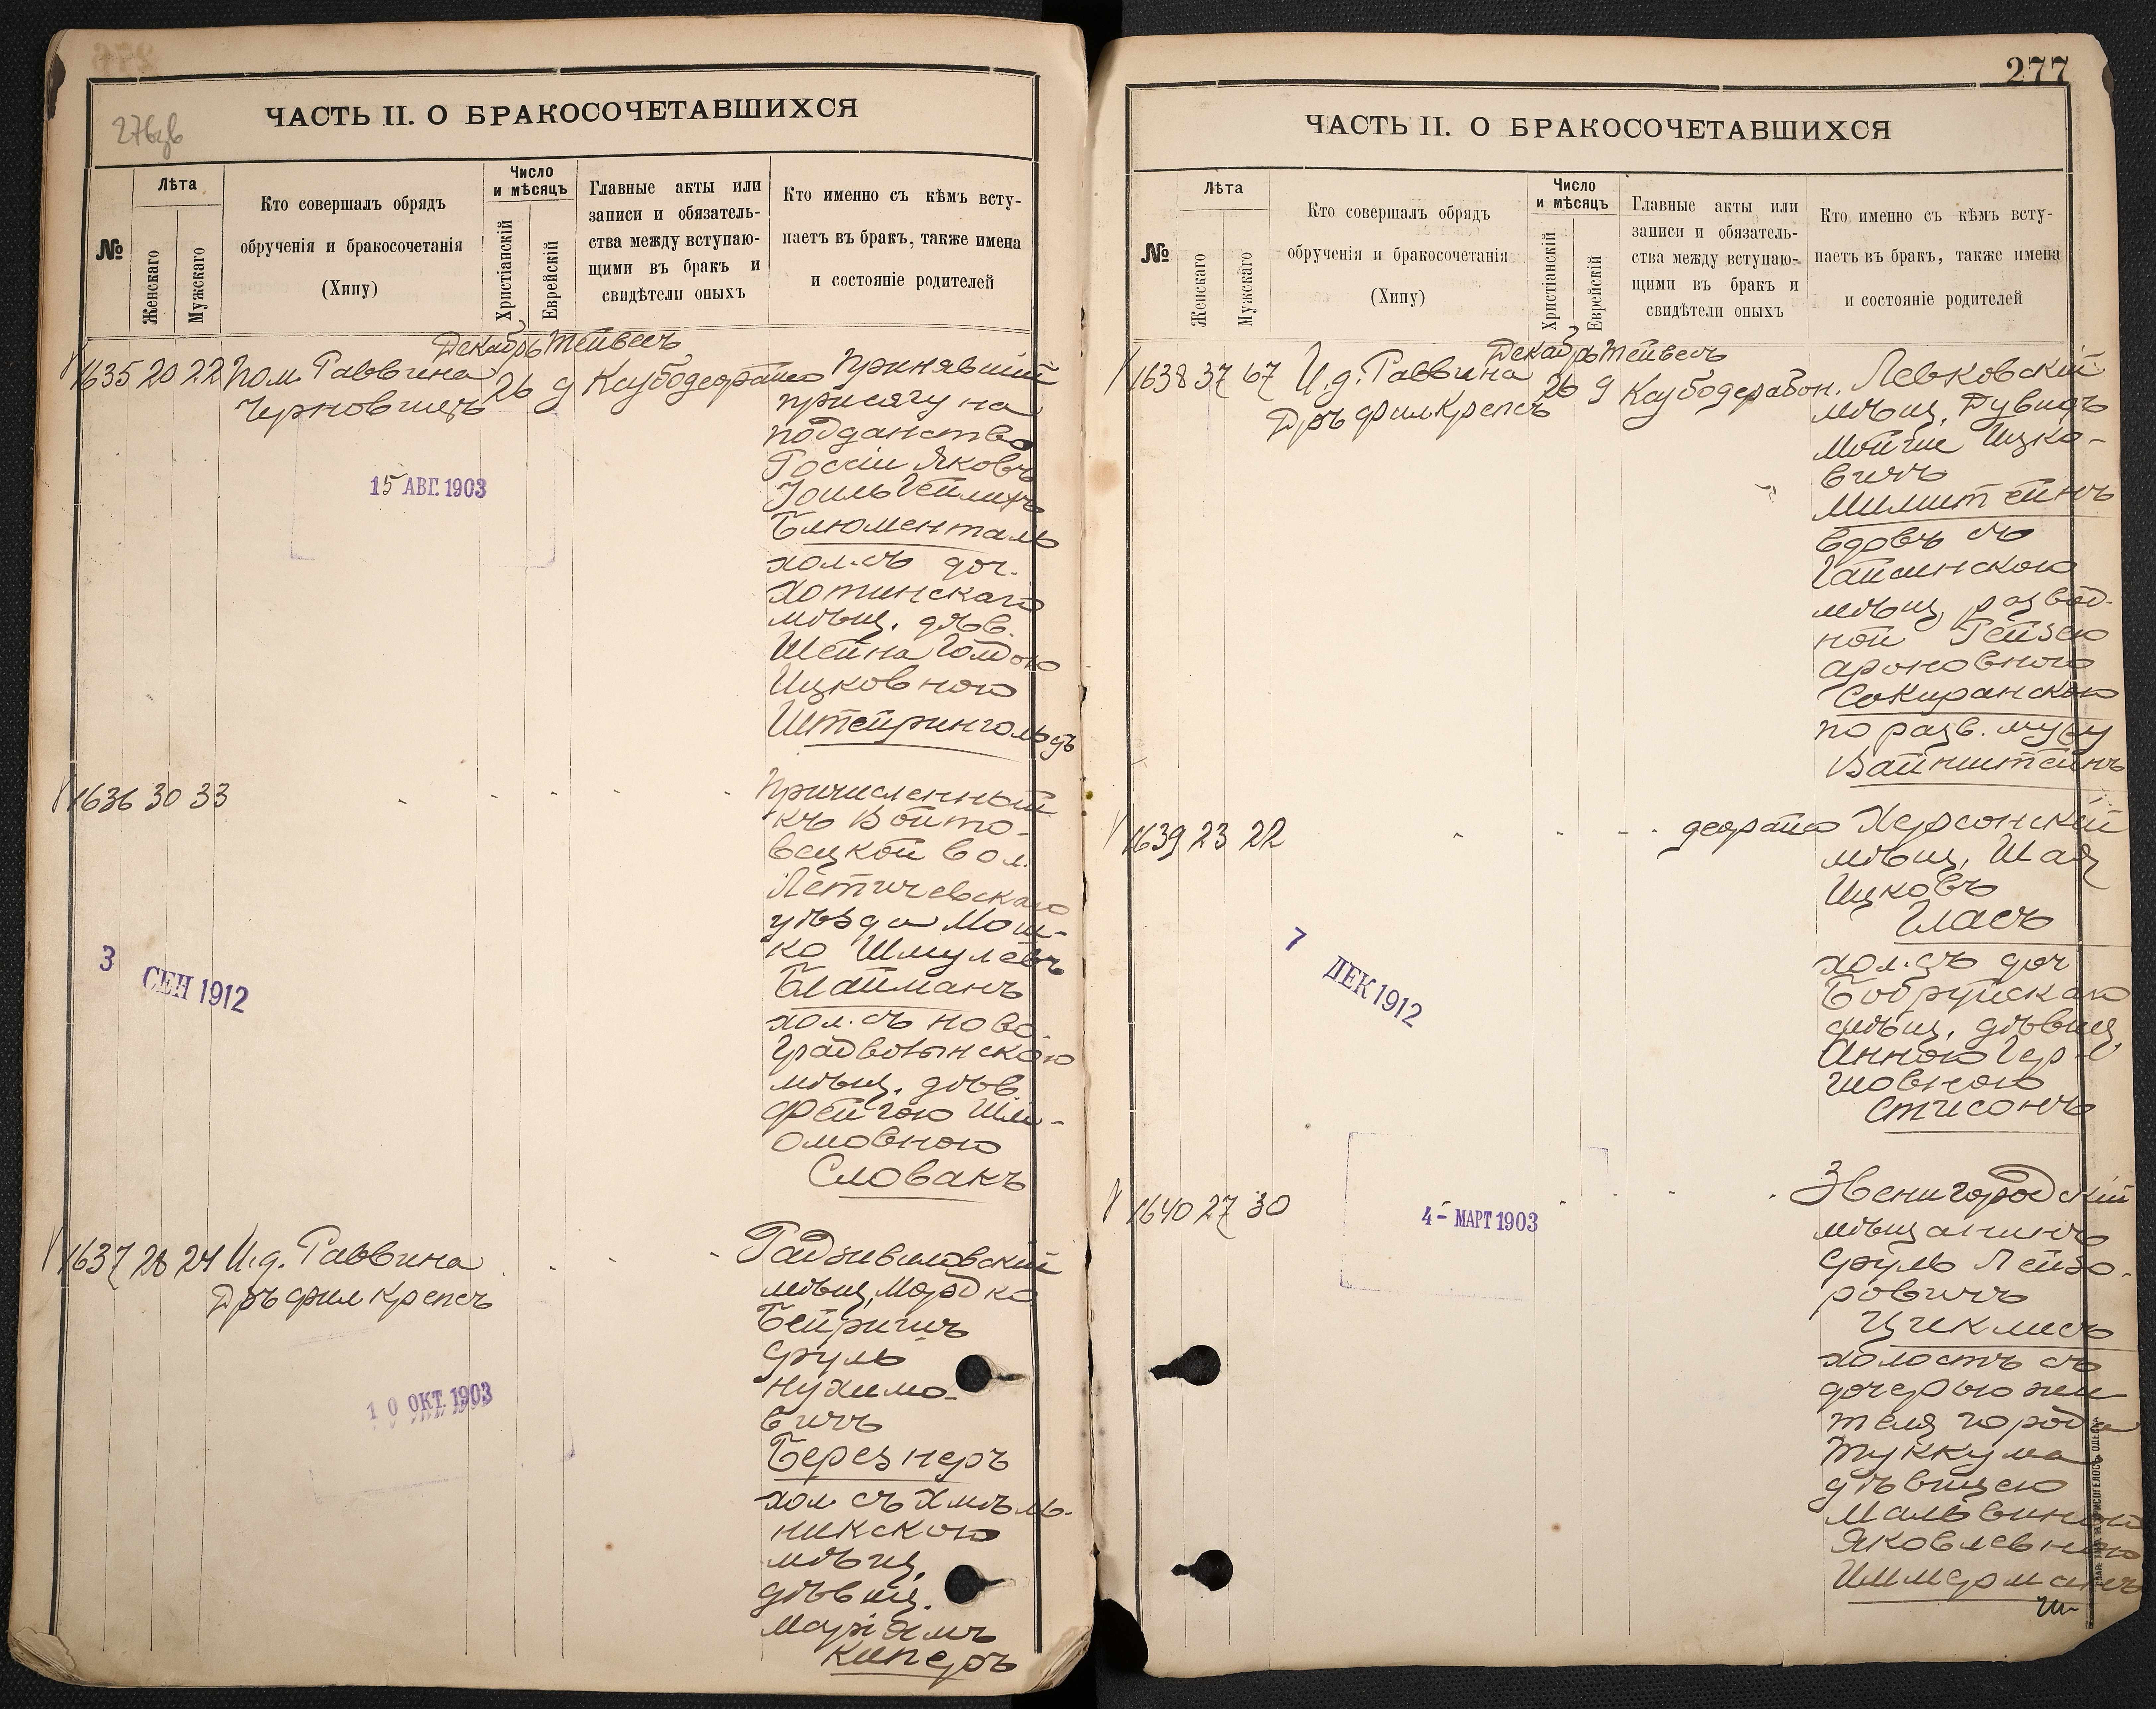 276об
ЧАСТЬ II. О БРАКОСОЧЕТАВШИХСЯ
№
Лѣта
Женскаго
Мужскаго
Кто совершалъ обрядъ
обрученія и бракосочетанія
(Хипу)
Число
и мѣсяцъ
Христіанскій
Еврейскій
Главные акты или
записи и обязатель-
ства между вступаю-
щими въ бракъ и
свидѣтели оныхъ
Кто именно съ кѣмъ всту-
паетъ въ бракъ, также имена
и состояніе родителей
Декабрь Тейвесъ
1635 20 22 Пом. Раввина 26 9
Черновицъ
Принявшій
присягу на
подданство
Россіи Яковъ
Іоиль Гейлихъ
Блюменталь
хол. съ доч.
Хотинскаго
мѣщ. дѣв.
Шейна Голдою
Ицковною
Штейрингольдъ
15 АВГ. 1903
1636 30 33 - - - - -
Причисленный
къ Войто-
вецкой вол.
Летичевскаго
уѣзда Мош-
ко Шмулевъ
Блайманъ
хол. съ ново-
градволынскою
мѣщ. дѣв.
Фейгою Шли-
омовною
Словакъ
3 СЕН 1912
1637 28 24 И.д. Раввина - - -
Дръ фил Крепсъ
Радзивиловскій
мѣщ. Мордко
Бейришъ
Сруль
Нухимо-
вичъ
Березнеръ
хол. съ Хмѣль-
никскою
мѣщ.
дѣвиц.
Маріямъ
Киперъ
10 ОКТ. 1903
277
ЧАСТЬ II. О БРАКОСОЧЕТАВШИХСЯ
№
Лѣта
Женскаго
Мужскаго
Кто совершалъ обрядъ
обрученія и бракосочетанія
(Хипу)
Число
и мѣсяцъ
Христіанскій
Еврейскій
Главные акты или
записи и обязатель-
ства между вступаю-
щими въ бракъ и
свидѣтели оныхъ
Кто именно съ кѣмъ всту-
паетъ въ бракъ, также имена
и состояніе родителей
Декабрь Тейвесъ
1638 37 67 И.д. Раввина 26 9
Дръ фил Крепсъ
Левковскій
мѣщ. Дувидъ
Мойше Ицко-
вичъ
Милштейнъ
вдовъ съ
Гайсинскою
мѣщ. развод-
ной Рейзею
Ароновною
Сокиранскою
по разв. мужу
Вайнштейнъ
1639 23 22 - - - -
Херсонскій
мѣщ. Шая
Ицковъ
Гласъ
хол. съ доч
Бобруйскаго
мѣщ. дѣвиц
Анною Гер-
шовною
Стисонъ
7 ДЕК 1912
1640 27 30 - - - -
Звенигородскій
мѣщанинъ
Сруль Лейзо-
ровичъ
Циклисъ
холостъ съ
дочерью жи
теля города
Туккума
дѣвицею
Мальвиною
Яковлевною
Иммерманъ
4- МАРТ 1903